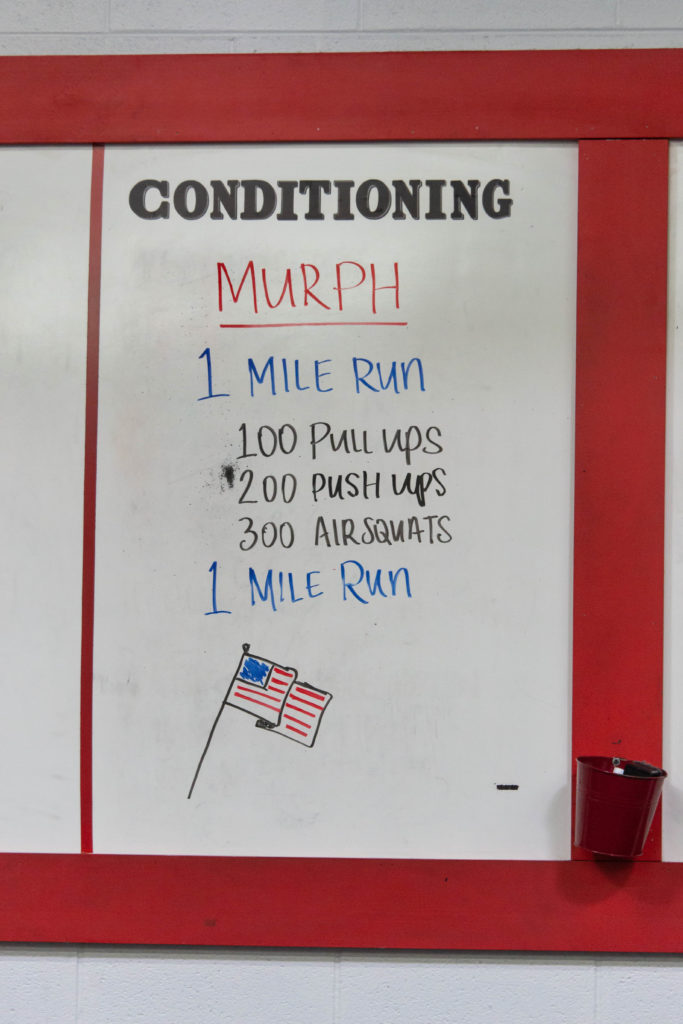 CONDITIONING
MURPH
1 MILE RUN
100 PULL UPS
200 PUSH UPS
300 AIRSQUATS
1 MILE RUN